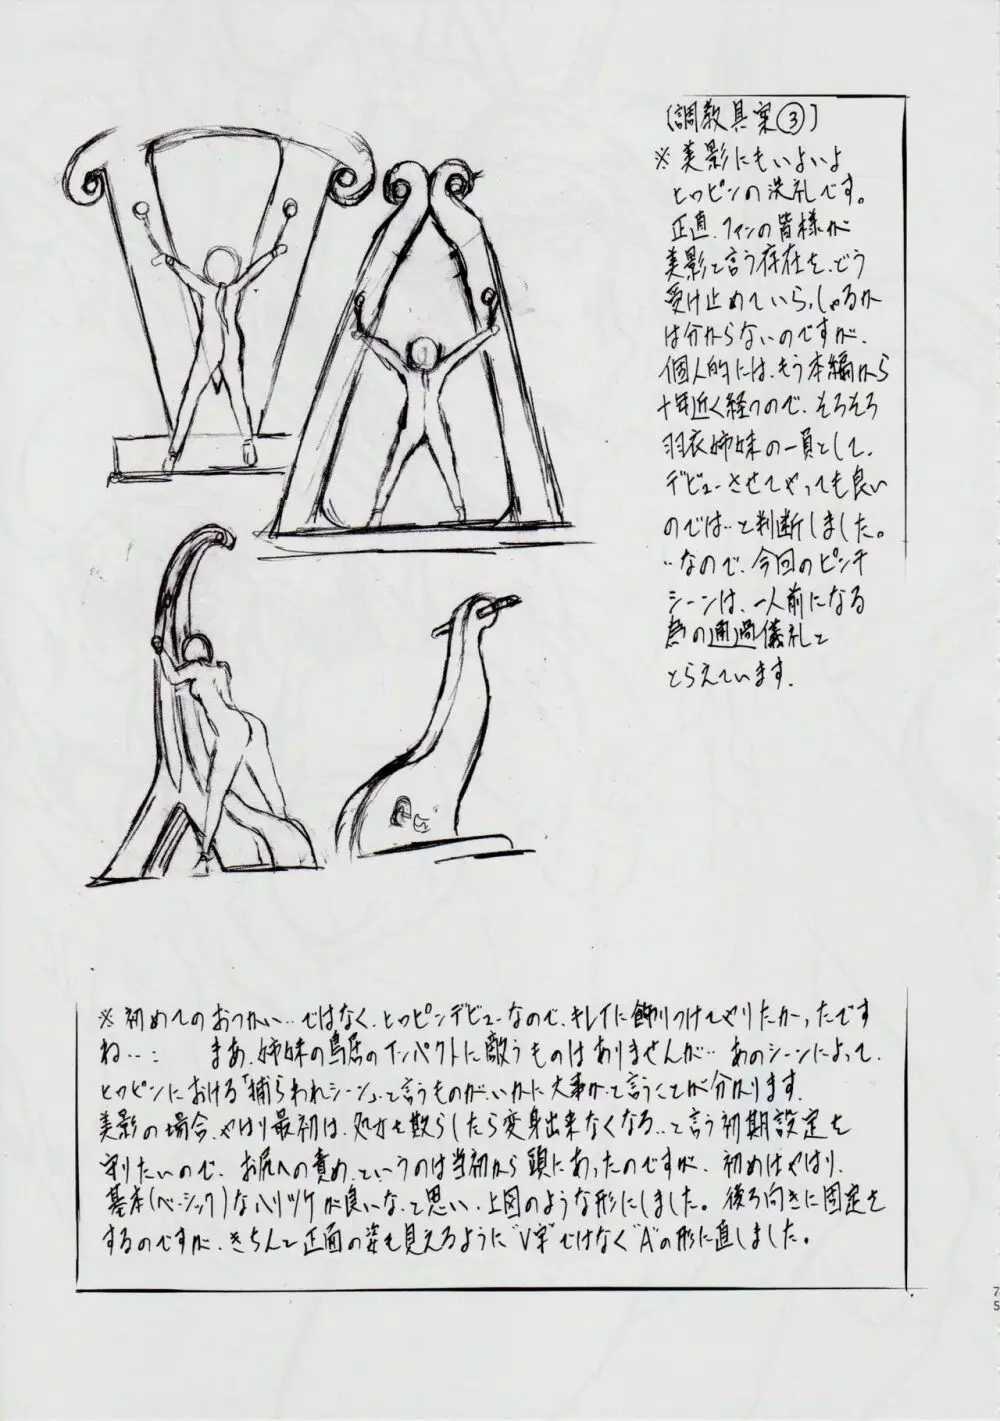 [調教具案③]
※美影にもいよいよ
ヒロピンの洗礼です。
正直、ファンの皆様が
美影と言う存在を、どう
受け止めていらっしゃるか
は分からないのですが、
個人的には、もう本編から
十年近く経つので、そろそろ
羽衣姉妹の一員として、
デビューさせてやっても良い
のでは…と判断しました。
…なので、今回のピンチ
シーンは、一人前になる
為の通過儀礼と
とらえています.
※初めてのおつかい…ではなく、ヒロピンデビューなので、キレイに飾りつけてやりたかったです
ね…： まあ、姉妹の鳥居のインパクトに敵うものはありませんが… あのシーンによって、
ヒロピンにおける「捕らわれシーン」と言うものが、いかに大事かって言うことが分かります.
美影の場合、やはり最初は、処女を散らしたら変身出来なくなる…と言う初期設定を
守りたいので、お尻への責め、というのは当初から頭にあったのですが、初めはやはり、
基本(ベーシック)なハリツケが良いな、と思い、上図のような形にしました。後ろ向きに固定を
するのですが、きちんと正面の姿も見えるように“V字”ではなく“A”の形に直しました。
75